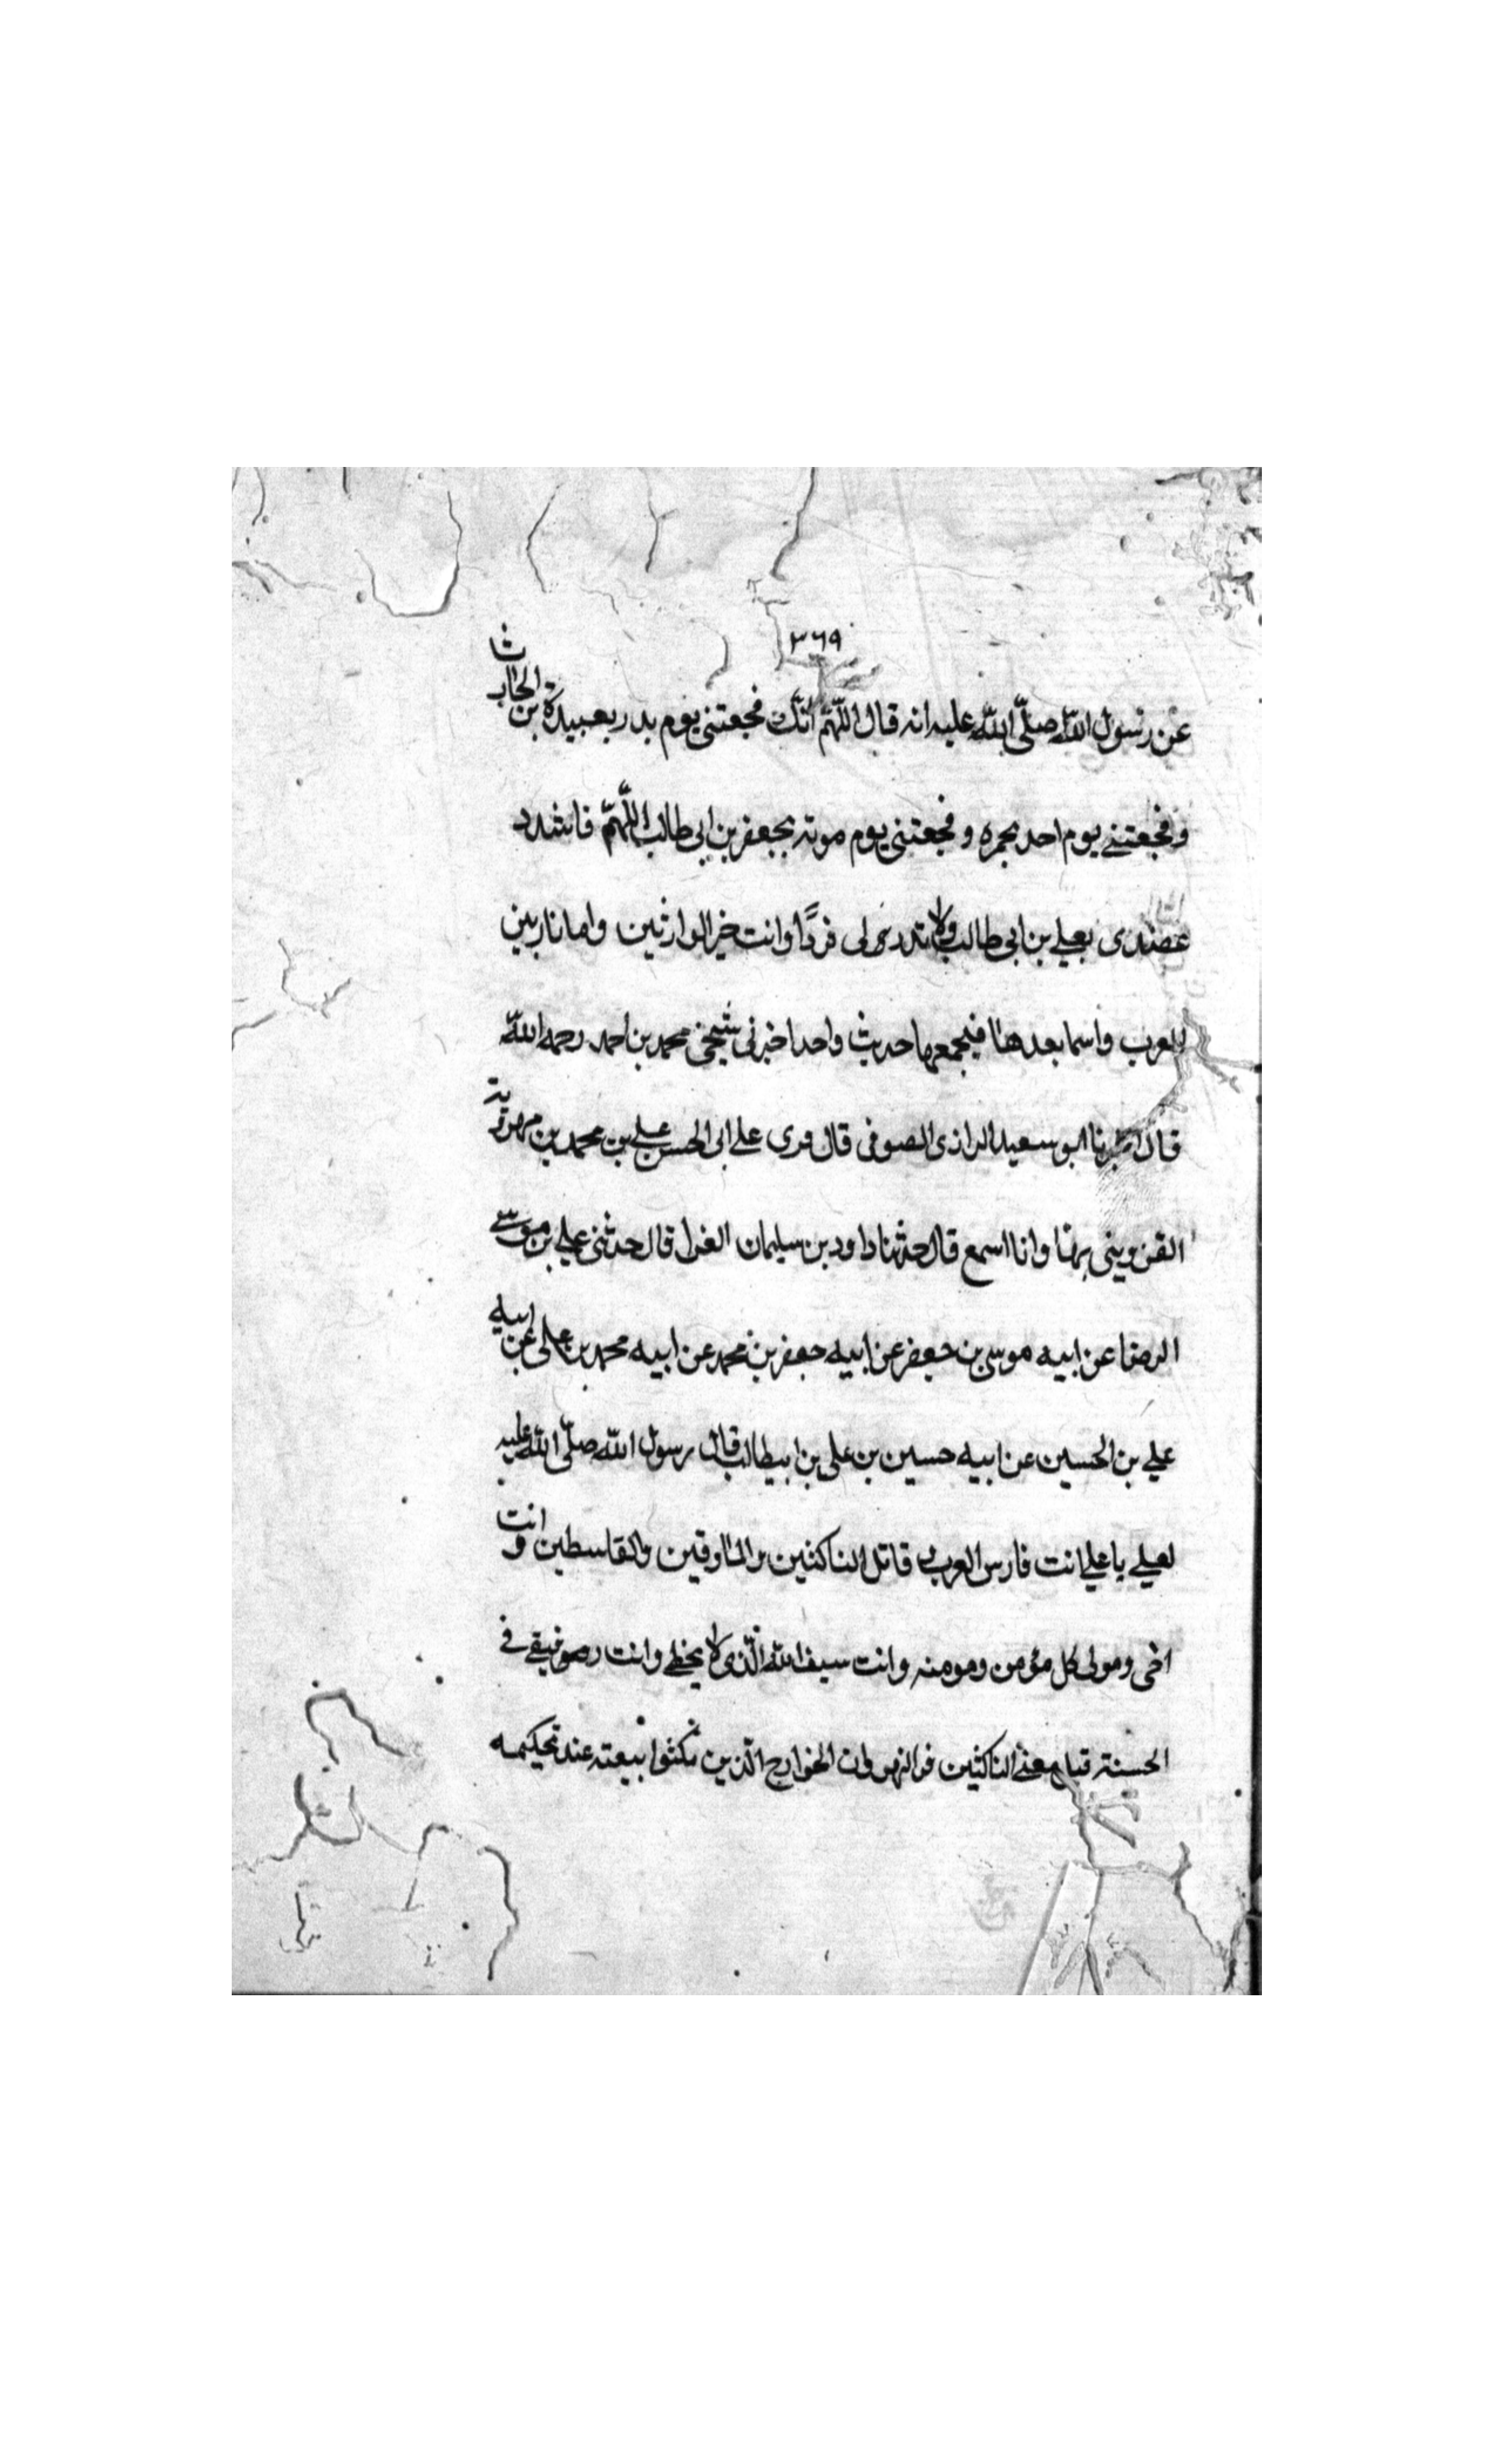 ٣٦٩
عن رسول اللّه صلّى اللّه عليه انه قال اللّهمّ انّك فجعتنى يوم بدر بعبيدة بن الحارث
وفجعتنى يوم احد بحمزه وفجعتنى يوم موته بجعفر بن ابى طالب اللّهمّ فاشدد
عضدى بعلي بن ابى طالب ولا تدرى لى فردًا وانت خير الوارثين واما
للعرب واسما بعدها فيجمعها حديث واحد اخبرنى شيخى محمد بن احمد رحمه اللّه
قال اخبرنا ابو سعيد الرازى الصوفى قال قرى على ابى الحسن علي بن محمد بن مهرويه
القزوينى بها وانا اسمع قال حدثنا داود بن سليمان الغزا قال حدثنى علي بن موسى
الرضا عن ابيه موسى بن جعفر عن ابيه جعفر بن محمد عن ابيه محمد بن على عن ابيه
علي بن الحسين عن ابيه حسين بن على بن ابيطالب قال رسول اللّه صلّى اللّه عليه
لعلي يا علي انت فارس العرب قاتل الناكثين والمارقين والقاسطين وانت
اخى ومولى كل مؤمن ومومنه وانت سيف اللّه الّذى لا يخطى وانت رفيقى فى
الحسنة قيل معنى الناكثين الخوارج الّذين نكثوا بيعته عند تحكيمه